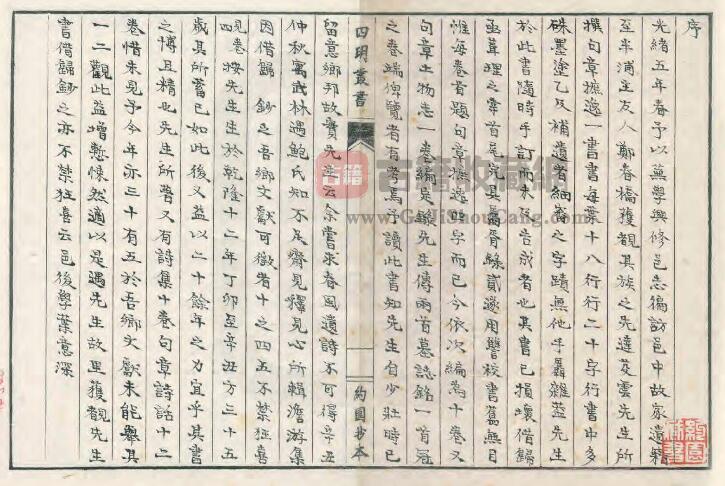 序
光緒五年春予以董學興修邑志徧訪邑中故家遺籍
至半浦主友人鄭春橋獲覩其族之先達茭雲先生所
撰句章摭逸一書書每葉十八行行二十字行書中多
硃墨塗乙及補遺者細審之字蹟無他手羼雜蓋先生
於此書隨時手訂而未及告成者也其書已損壞借歸
亟葺理之幸首尾完具爲錄貳遂用讐校書舊無目
惟每卷首題句章摭逸四字而已今依次編爲十卷又
句章土物志一卷編是錄先生傳兩首墓誌銘一首冠
之卷端俾覽者有考焉予讀此書知先生自少壯時已
四明叢書
約園抄本
留意鄉邦故實先生云余嘗求春風遺詩不可得辛丑
仲秋寓武林遇鮑氏知不足齋見釋見心所輯澹游集
因借歸 鈔之吾鄉文獻可徵者十之四五不禁狂喜
見卷四按先生生於乾隆十二年丁卯至辛丑方三十五
歲其所蓄已如此後又益以二十餘年之力宜乎其書
之博且精也先生所著又有詩集十卷句章詩話十二
卷惜未見予今年亦三十有五於吾鄉文獻未能舉其
一二觀此益增慙悚然適以是遇先生故里獲覩先生
書借歸鈔之亦不禁狂喜云邑後學葉意深
古籍收藏網
www.GuJiShouCang.com